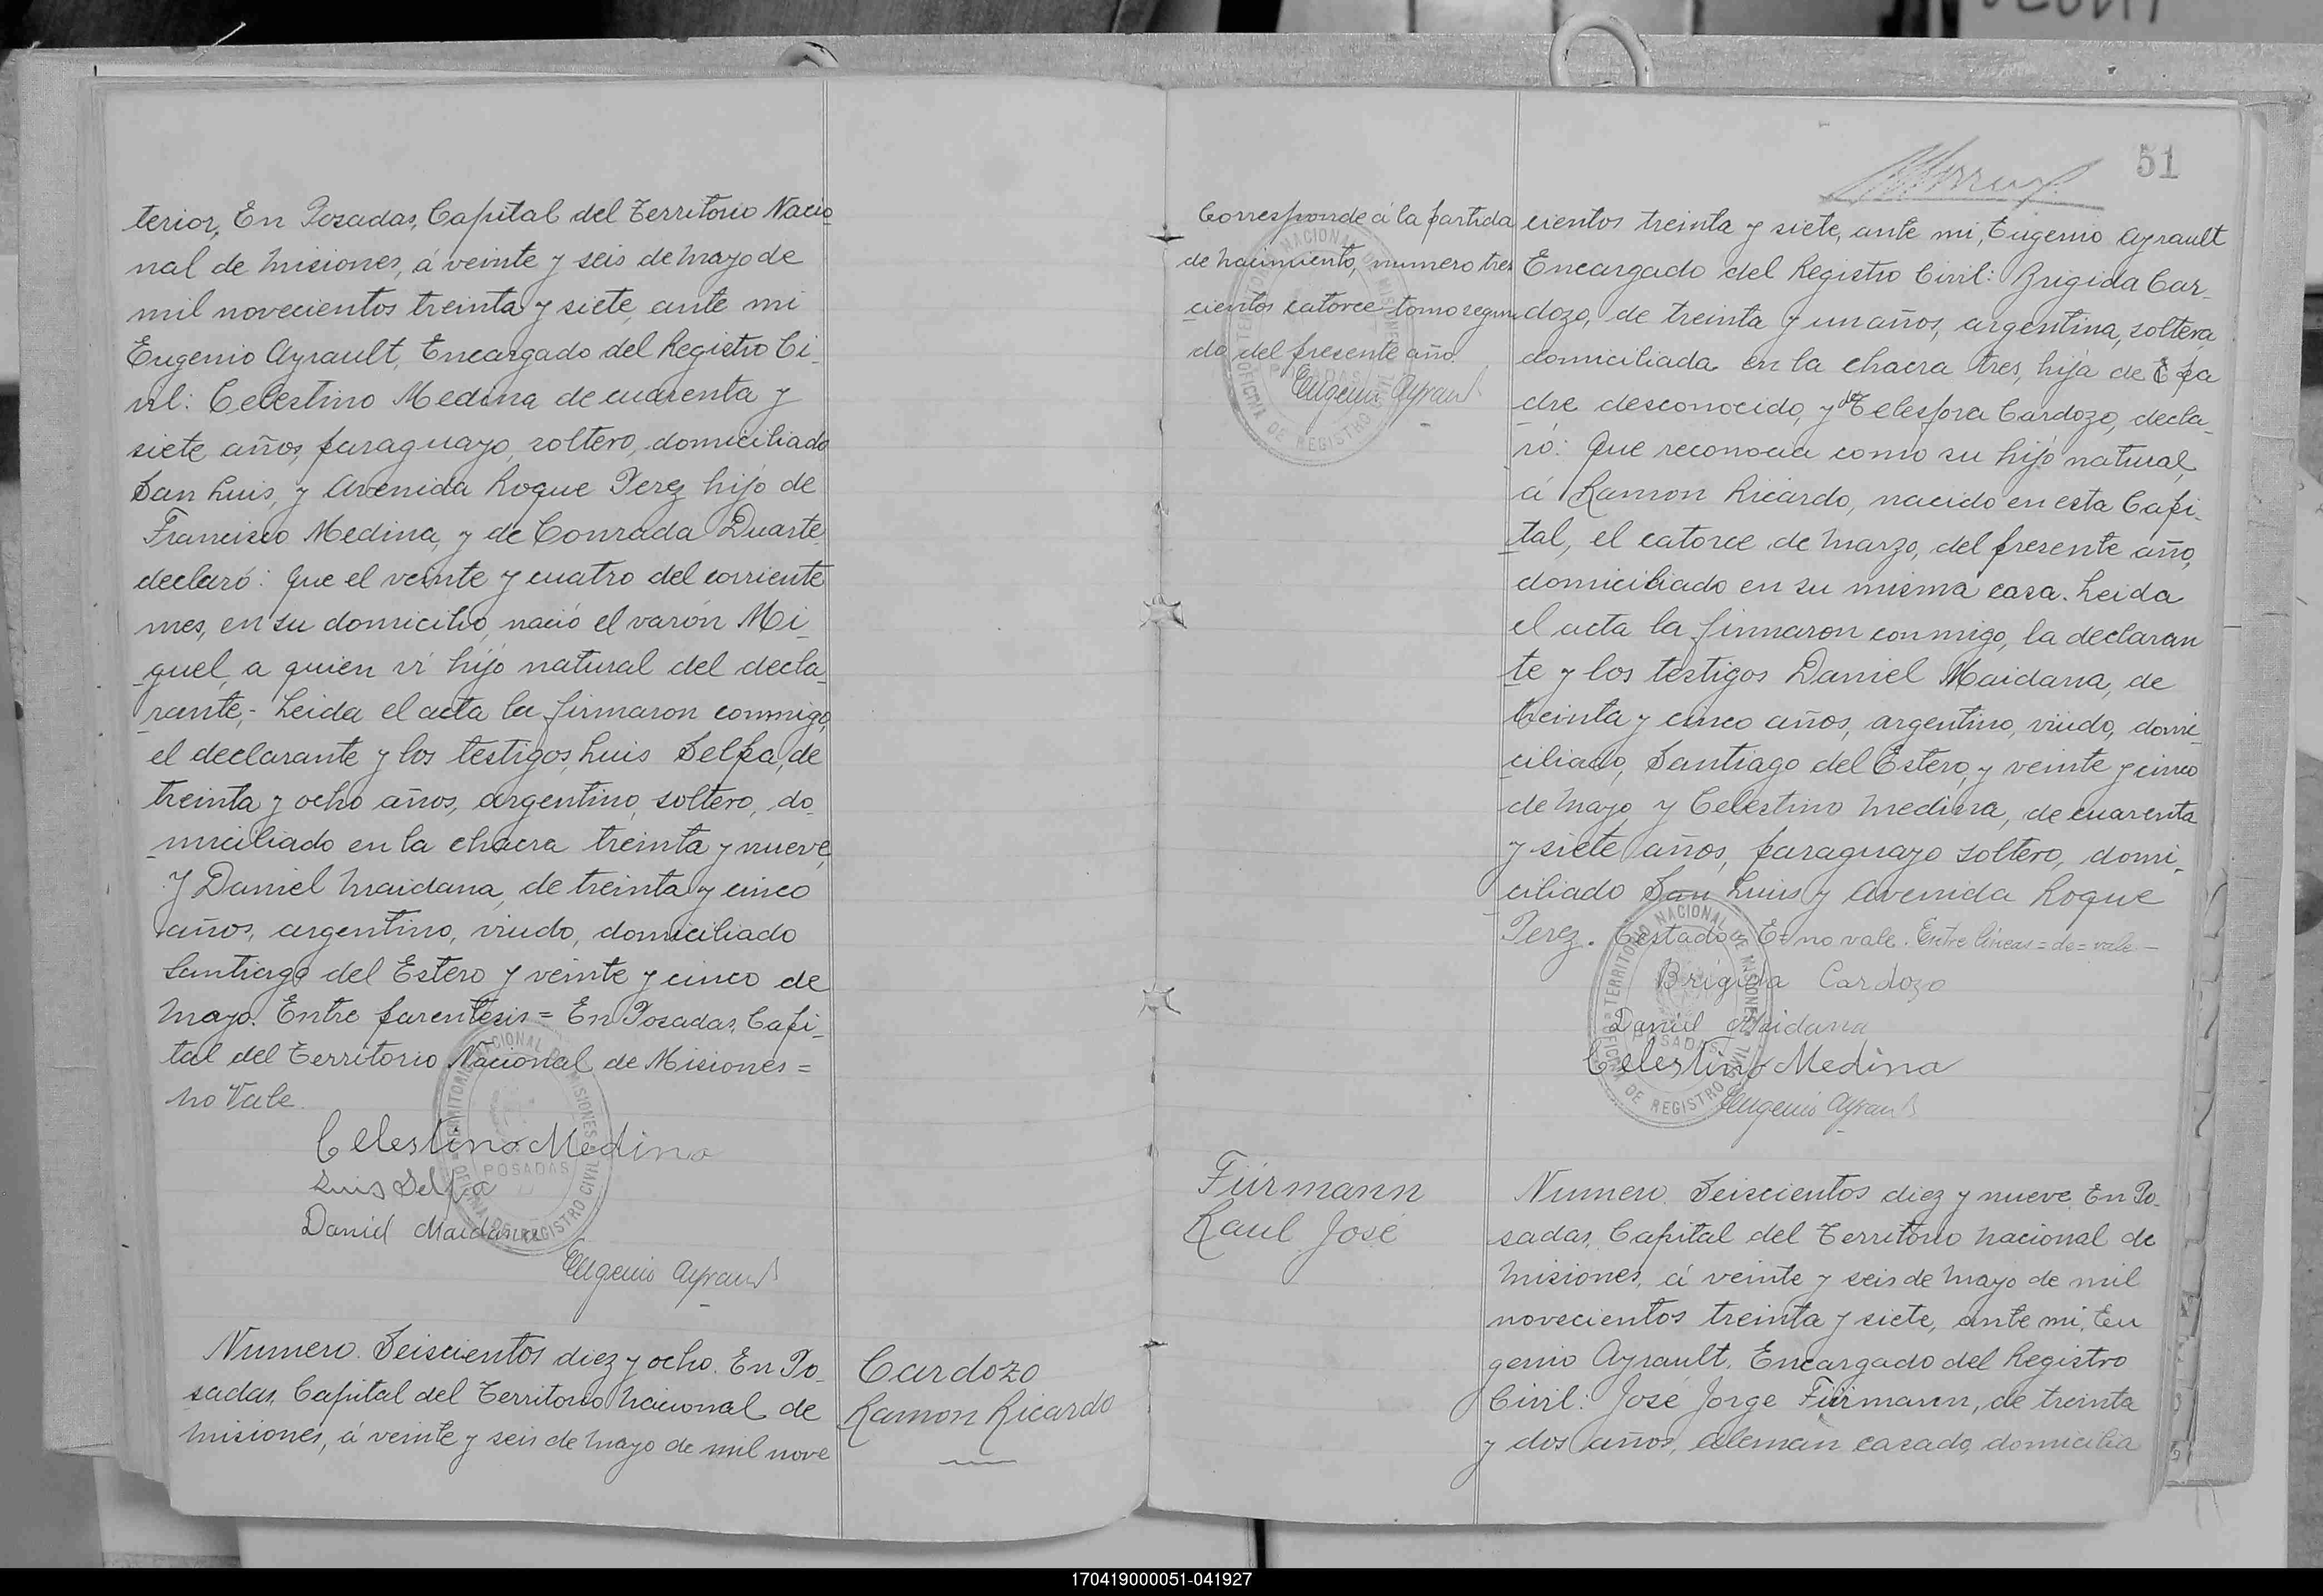 terior, En Posadas, Capital del Territorio Nacio
nal de Misiones, á veinte y seis de Mayo de
mil novecientos treinta y siete, ante mi
Eugenio Ayrault, Encargado del Registro Ci_
vil: Celestino Medina de cuarenta y
siete años, paraguayo, soltero, domiciliado
San Luis, y Avenida Roque Perez hijo de
Francisco Medina, y de Conrada Duarte
declaró: Que el veinte y cuatro del corriente
mes, en su domicilio, nació el varón Mi_
guel, a quien ví hijo natural del decla_
rante,- Leida el acta la firmaron conmigo,
el declarante y los testigos, Luis Selpa, de
treinta y ocho años, argentino, soltero, do_
miciliado en la chacra treinta y nueve,
Y Daniel Maidana, de treinta y cinco
años, argentino, viudo, domiciliado
Santiago del Estero y veinte y cinco de
Mayo. Entre parentesis = En Posadas, Capi_
tal del Territorio Nacional de Misiones =
no Vale.
Celestino Medina
Luis Selpa
Daniel Maidana
Eugenio Ayrault
TERRITORIO NACIONAL DE MISIONES
POSADAS
OFICINA DE REGISTRO CIVIL
Numero. Seiscientos diez y ocho. En Po_
sadas, Capital del Territorio Nacional de
Misiones, á veinte y seis de Mayo de mil nove
Cardozo
Ramon Ricardo
51
Corresponde á la partida
de nacimiento, numero tres
cientos catorce tomo segun
do del presente año.
Eugenio Ayrault
TERRITORIO NACIONAL DE MISIONES
POSADAS
OFICINA DE REGISTRO CIVIL
cientos treinta y siete, ante mi, Eugenio Ayrault
Encargado del Registro Civil: Brigida Car_
dozo, de treinta y un años, argentina, soltera,
domiciliada en la chacra tres, hija de E pa
dre desconocido, y de Telespora Cardozo, decla_
ró: Que reconocia como su hijo natural,
á Ramon Ricardo, nacido en esta Capi_
tal, el catorce de Marzo, del presente año,
domiciliado en su misma casa. Leida
el acta la firmaron conmigo, la declaran
te y los testigos Daniel Maidana, de
treinta y cinco años, argentino, viudo, domi_
ciliado, Santiago del Estero, y veinte y cinco
de Mayo y Celestino Medina, de cuarenta
y siete años, paraguayo soltero, domi_
ciliado San Luis y Avenida Roque
Perez. Testado = E= no vale. Entre lineas = de = vale -
Brigida Cardozo
Daniel Maidana
Celestino Medina
Eugenio Ayrault
TERRITORIO NACIONAL DE MISIONES
POSADAS
OFICINA DE REGISTRO CIVIL
Fürmann
Raul José
Numero. Seiscientos diez y nueve. En Po_
sadas, Capital del Territorio Nacional de
Misiones, á veinte y seis de Mayo de mil
novecientos treinta y siete, ante mi, Eu
genio Ayrault, Encargado del Registro
Civil: José Jorge Fürmann, de treinta
y dos años, aleman casado, domicilia
170419000051-041927